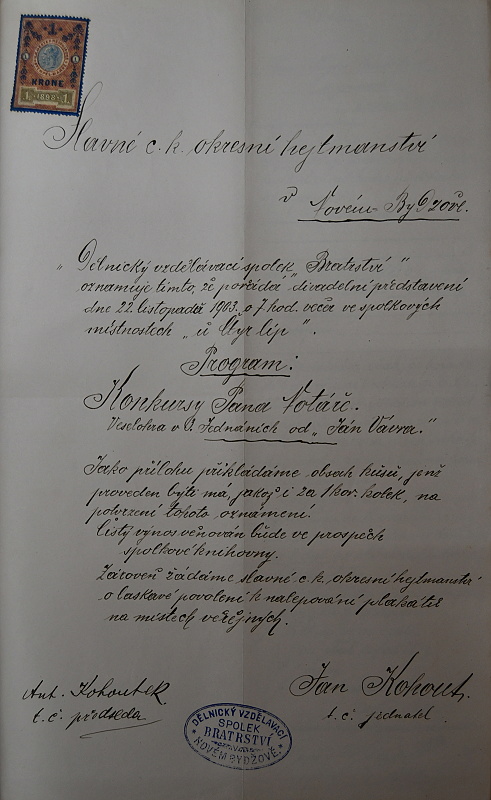 1
KRONE
1 1898 1
Slavné c. k. okresní hejtmanství
v
Novém Bydžově.
„Dělnický vzdělávací spolek „Bratrství"
oznamuje tímto, že pořádá divadelní představení
dne 22. listopadu 1903. o 7 hod. večer ve spolkových
místnostech „u čtyř lip".
Program:
Konkursy Pana Notáře.
Veselohra v 3. Jednáních od „Ján Vávra."
Jako přílohu přikládáme obsah kusu, jenž
proveden býti má, jakož i za 1 kor. kolek, na
potvrzení tohoto oznámení.
Čistý výnos věnován bude ve prospěch
spolkové knihovny.
Zároveň žádáme slavné c. k. okresní hejtmanství
o laskavé povolení k nalepování plakátů
na místech veřejných.
Jan Kohout,
t. č. jednatel.
Ant. Kohoutek
t. č. předseda
DĚLNICKÝ VZDĚLÁVACÍ
SPOLEK
BRATRSTVÍ
V
NOVÉM BYDŽOVĚ.